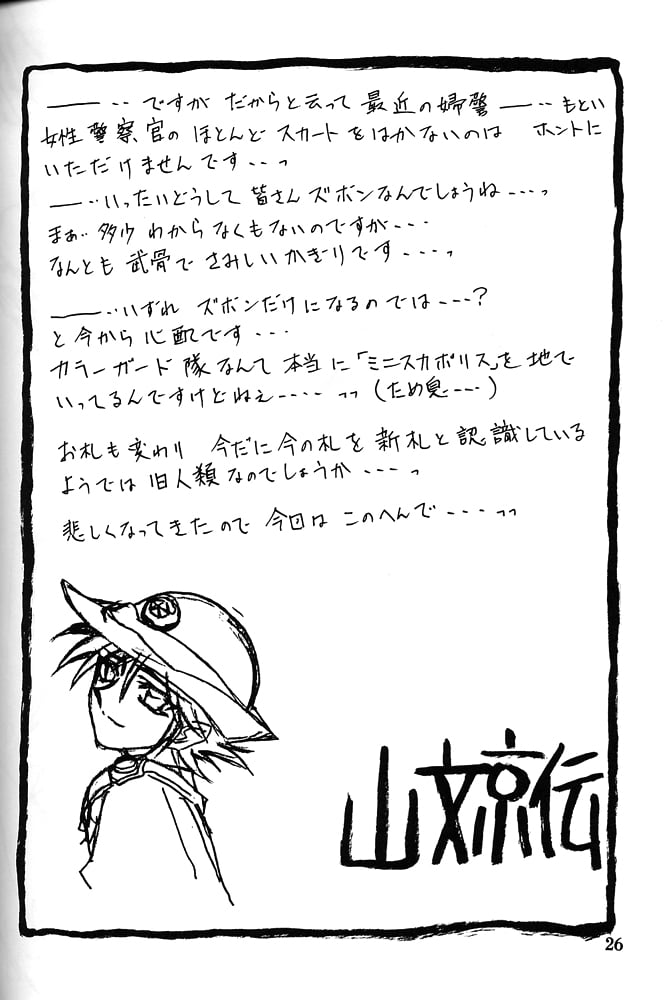 ——‥ですが だからと云って 最近の婦警——‥もとい
女性警察官の ほとんど スカートをはかないのは ホントに
いただけませんです‥‥っ
——‥いったいどうして 皆さん ズボンなんでしょうね‥‥っ
まぁ‥多少 わからなくもないのですが‥‥
なんとも 武骨で さみしいかぎりです‥‥っ
——‥いずれ ズボンだけになるのでは‥‥?
と今から心配です‥‥
カラーガード隊なんて 本当に「ミニスカポリス」を地で
いってるんですけどねぇ‥‥っっ(ため息‥‥)
お札も変わり 今だに今の札を 新札と認識している
ようでは旧人類なのでしょうか‥‥っ
悲しくなってきたので 今回は このへんで‥‥っっ
山文京伝
26